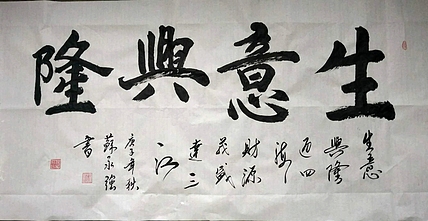 生意興隆
生意
興隆
通四
海
財源
茂盛
達三
江
庚子年秋
蘇永強
書